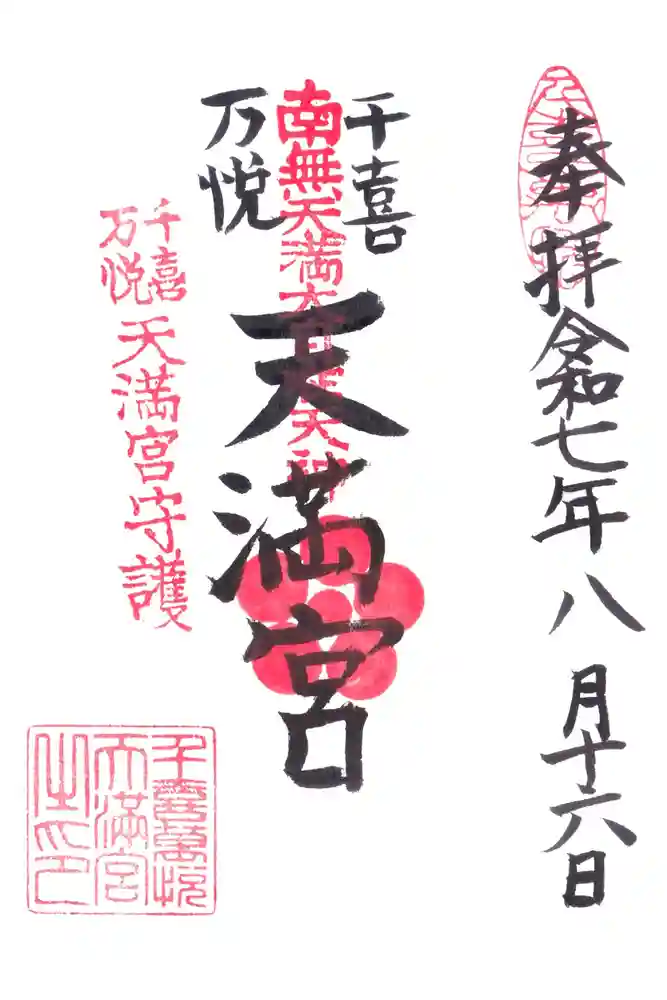 奉拝
令和七年八月十六日
千喜
万悦
南無天満大自在天神
天満宮
千喜
万悦
天満宮守護
千喜萬悦
天満宮
之印